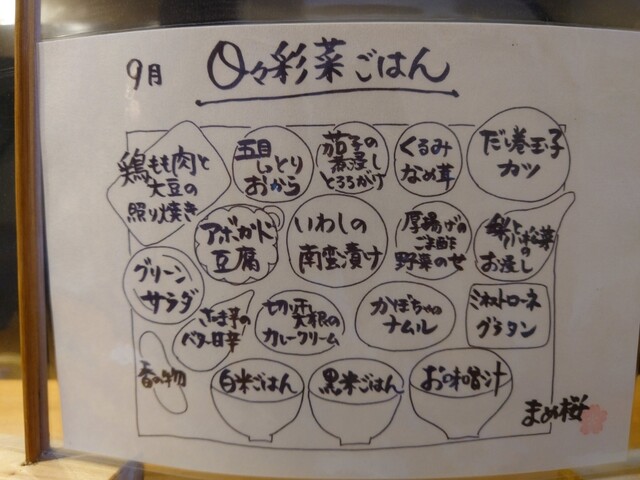 9月
日々彩菜ごはん
鶏もも肉と
大豆の
照り焼き
五目
しっとり
おから
茄子の
煮浸し
とろろがけ
くるみ
なめ茸
だし巻玉子
カツ
アボカド
豆腐
いわしの
南蛮漬け
厚揚げの
ごま酢
野菜のせ
小松菜
の
お浸し
グリーン
サラダ
さつま芋の
バター甘辛
切り干し
大根の
カレークリーム
かぼちゃの
ナムル
ミネストローネ
グラタン
香の物
白米ごはん
黒米ごはん
お味噌汁
まめ桜